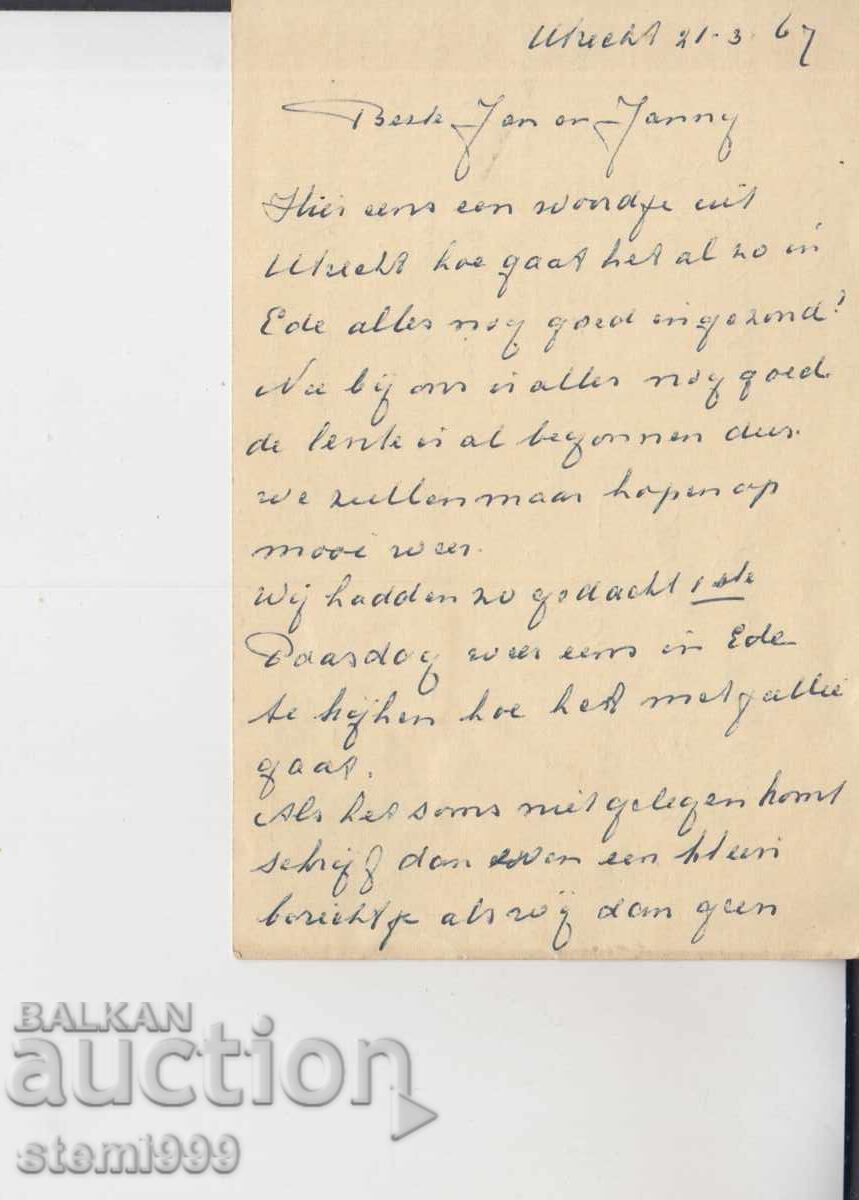 Utrecht 21-3-67
Beste Jan en Janny
Hier eens een woordje uit
Utrecht hoe gaat het al zo in
Ede alles nog goed en gezond?
Nee bij ons is alles nog goed
de lente is al begonnen dus
we zullen maar hopen op
mooi weer.
Wij hadden zo gedacht 1ste
Paasdag weer eens in Ede
te kijken hoe het met jullie
gaat.
Als het soms niet gelegen komt
schrijf dan even een klein
berichtje als wij dan geen
BALKAN
auction
stemi999